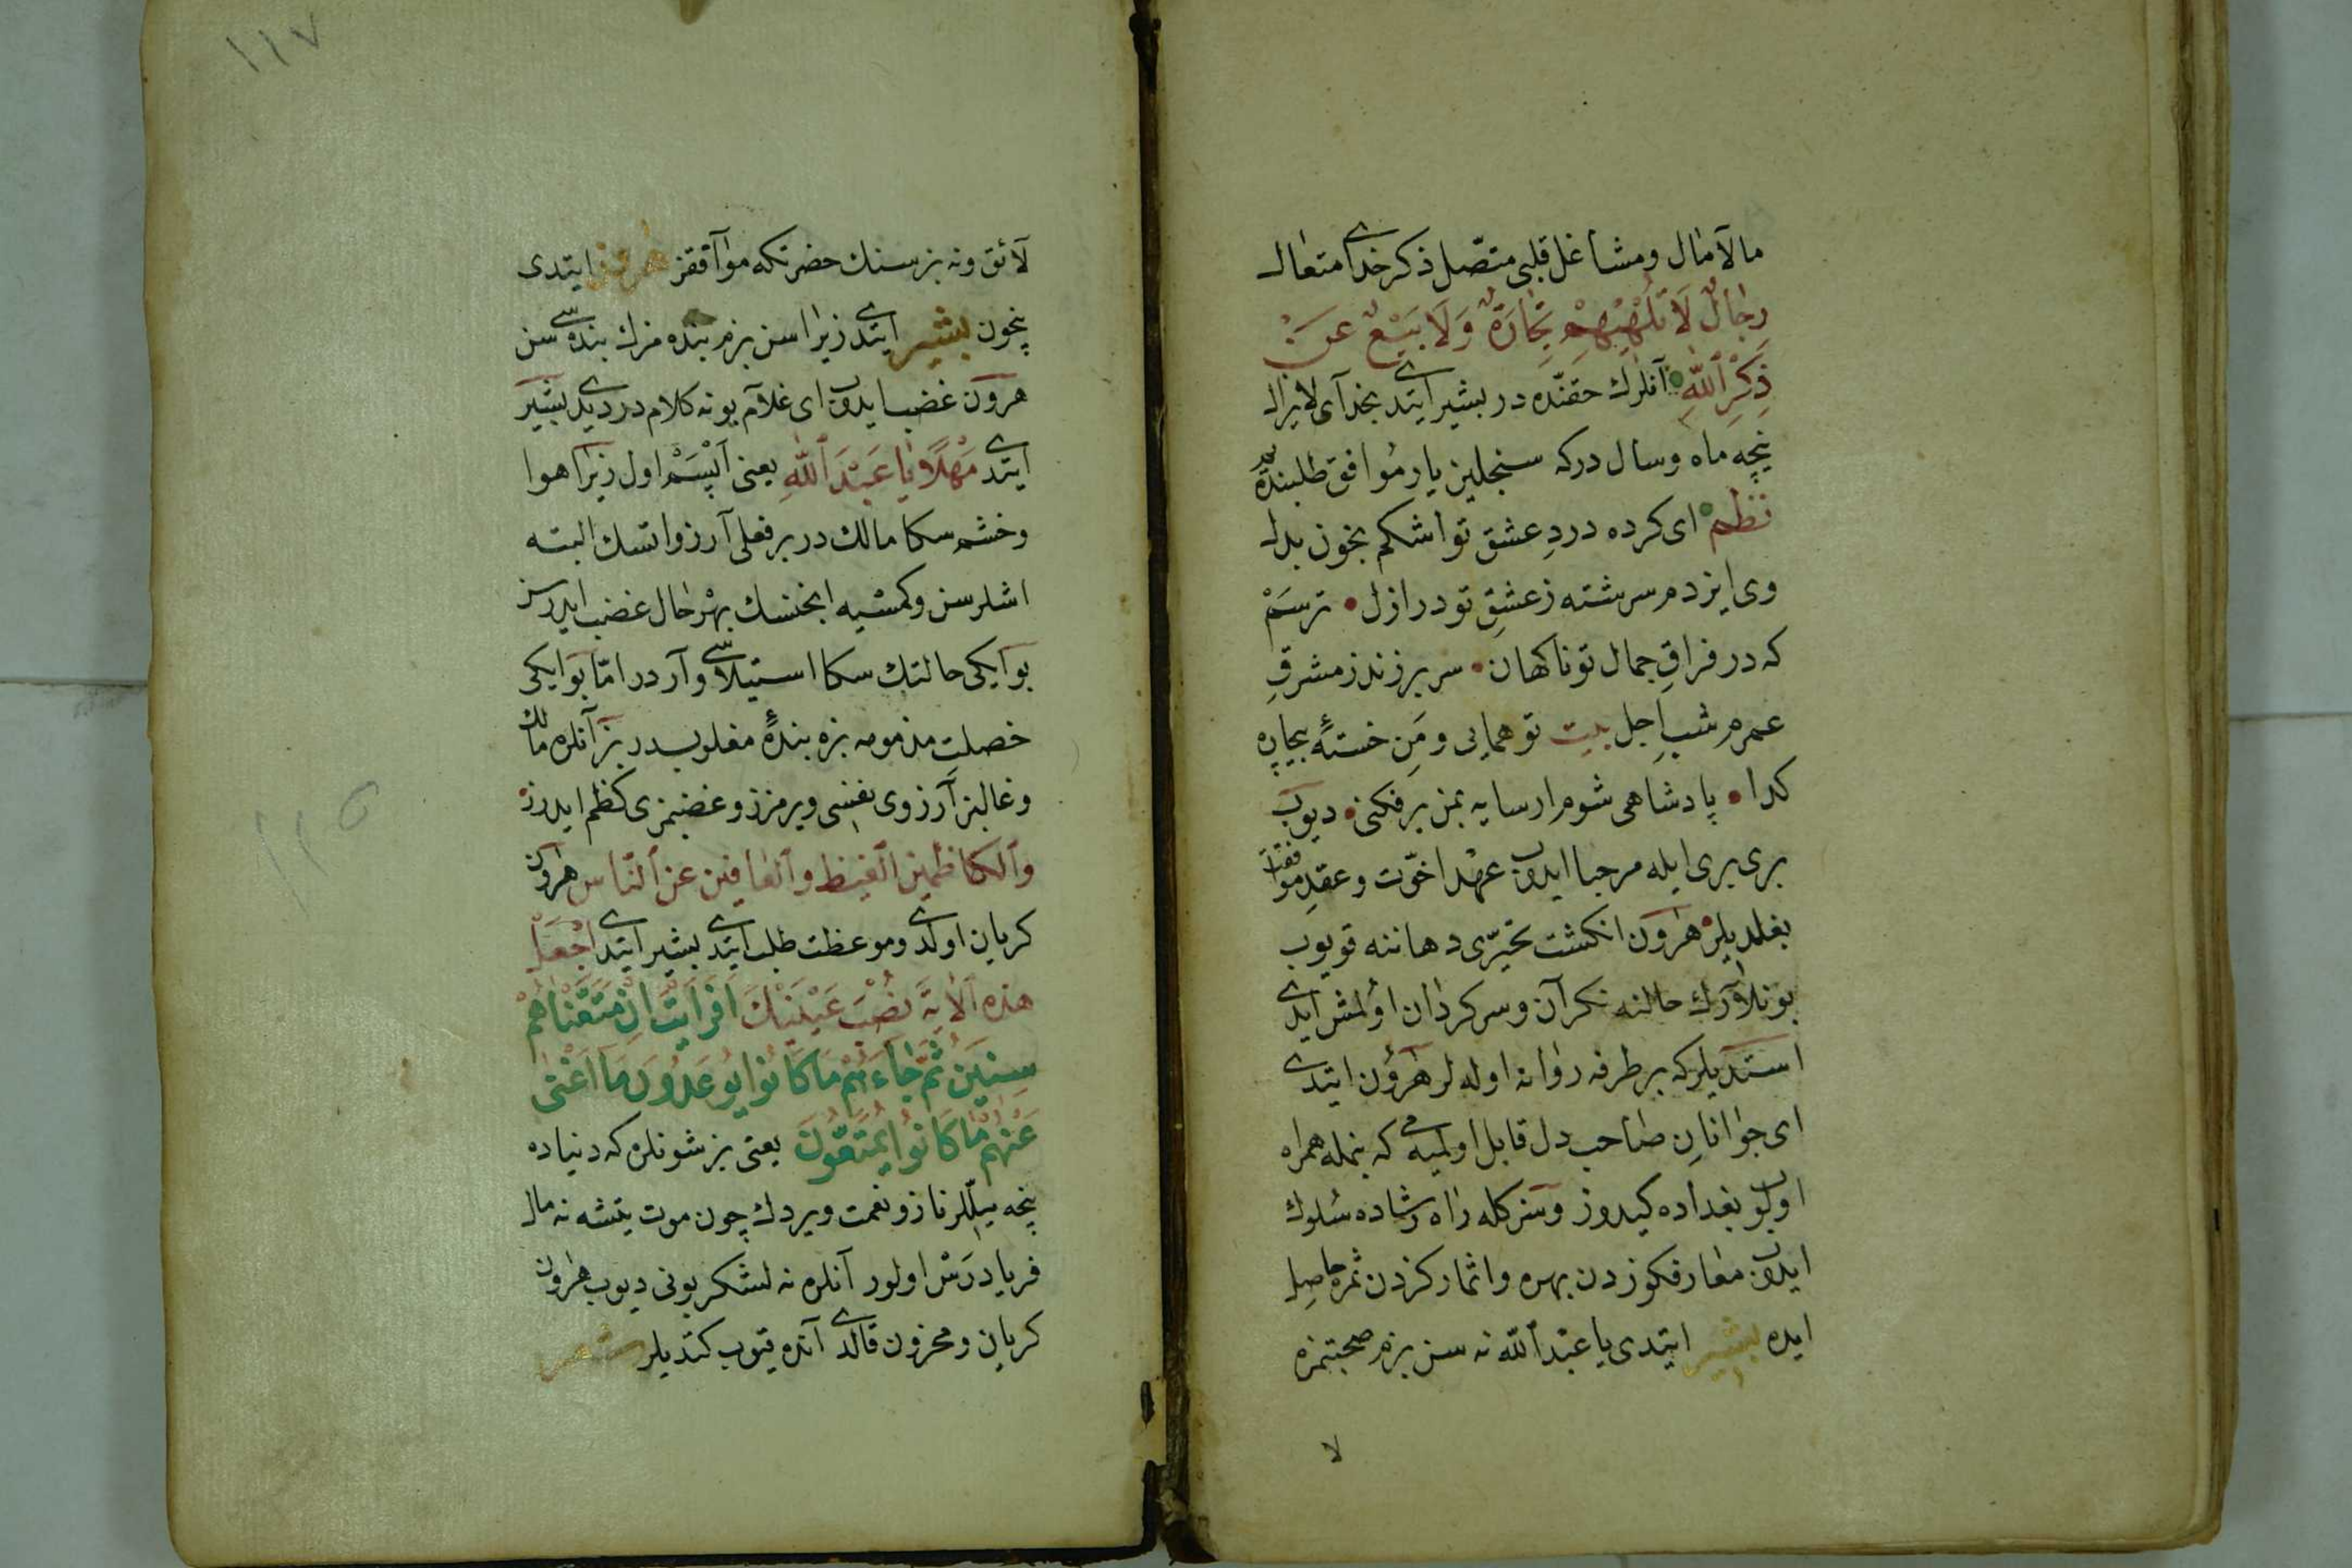 مالآمال ومشاغل قلبى متصّل ذكر خداى متعال
رِجَالٌ لَا تُلْهِيهِمْ تِجَارَةٌ وَلَا بَيْعٌ عَنْ
ذِكْرِ ٱللّٰهِ آنلرك حقنّده در بشير ايتدى بخداى لا يزال
نيچه ماه وسال دركه سنجلين يار مُوافق طلبنده يز
نظم اى كرده دردِ عشق تو اشكم بخون بدل
وى ايزدم سرشته ز عشقِ تو در ازل • ترسَمْ
كه در فراقِ جمال تو ناكهان • سر برزند ز مشرقِ
عمرم شبِ اجل بيت تو همايى و مَنِ خستهٔ بيچاره
كدا • پادشاهى شوم ار سايه بمن برفكنى • ديوب
برى برى ايله مرحبا ايدوب عهد اخوّت وعقدِ موافقت
بغلديلر هٰرون انكشت تحيّرى دهاننه قويوب
بونلارك حالنه نكران وسركردان اولمش ايدى
استديلركه بر طرفه روانه اوله لر هٰرون ايتدى
اى جوانانِ صاحب دل قابل اولميه مى كه بنمله همراه
اولوب بغداده كيدوز وسزكله راه رشاده سُلوك
ايدوب معارفكوزدن بهره واثماركزدن ثمره حاصل
ايده بشير ايتدى يا عبد ٱللّٰه نه سن بزم صحبتمزه
لا
١١٧
لآئق ونه بز سنك حضرتكه موآفقز هٰرون ايتدى
نيچون بشير ايتدى زيرا سن بزم بنده مزك بنده سى سن
هرون غضب ايدوب اى غلام بو نه كلام در ديدى بشير
ايتدى مَهْلًا يَا عَبْدَ ٱللّٰهِ يعنى اَپْسَمْ اول زيرا هوا
وخشم سكا مالك در بر فعلى آرزو اتسك البته
اشلرسن وكمسيه انجنسك بهر حال غضب ايدرسن
بو ايكى حالتك سكا استيلاسى وآردر امّا بو ايكى
خصلتِ مذمومه بزه بندهٔ مغلوبدر بز آنلره مالك
وغالبز آرزوى نفسى ويرمزز وغضبمزى كظم ايدرز
وٱلكاظمين ٱلغيظ وٱلعافين عن ٱلنّاس هٰرون
كريان اولدى وموعظت طلب ايتدى بشير ايتدى اجْعَلْ
هذه ٱلاٰيةَ نُصْبَ عَيْنَيْكَ اَفَرَاَيْتَ اِنْ مَتَّعْنَاهُمْ
سِنِينَ ثُمَّ جَاءَهُمْ مَا كَانُوا يُوعَدُونَ مَا اَغْنٰى
عَنْهُمْ مَا كَانُوا يُمَتَّعُونَ يعنى بز شونلره كه دنياده
نيچه ييللر ناز ونعمت ويردك چون موت يتشه نه مال
فريادرَسْ اولور آنلره نه لشكر بونى ديوب هٰرون
كريان ومحزون قالدى آنده قيوب كتديلر شعر
١١٥